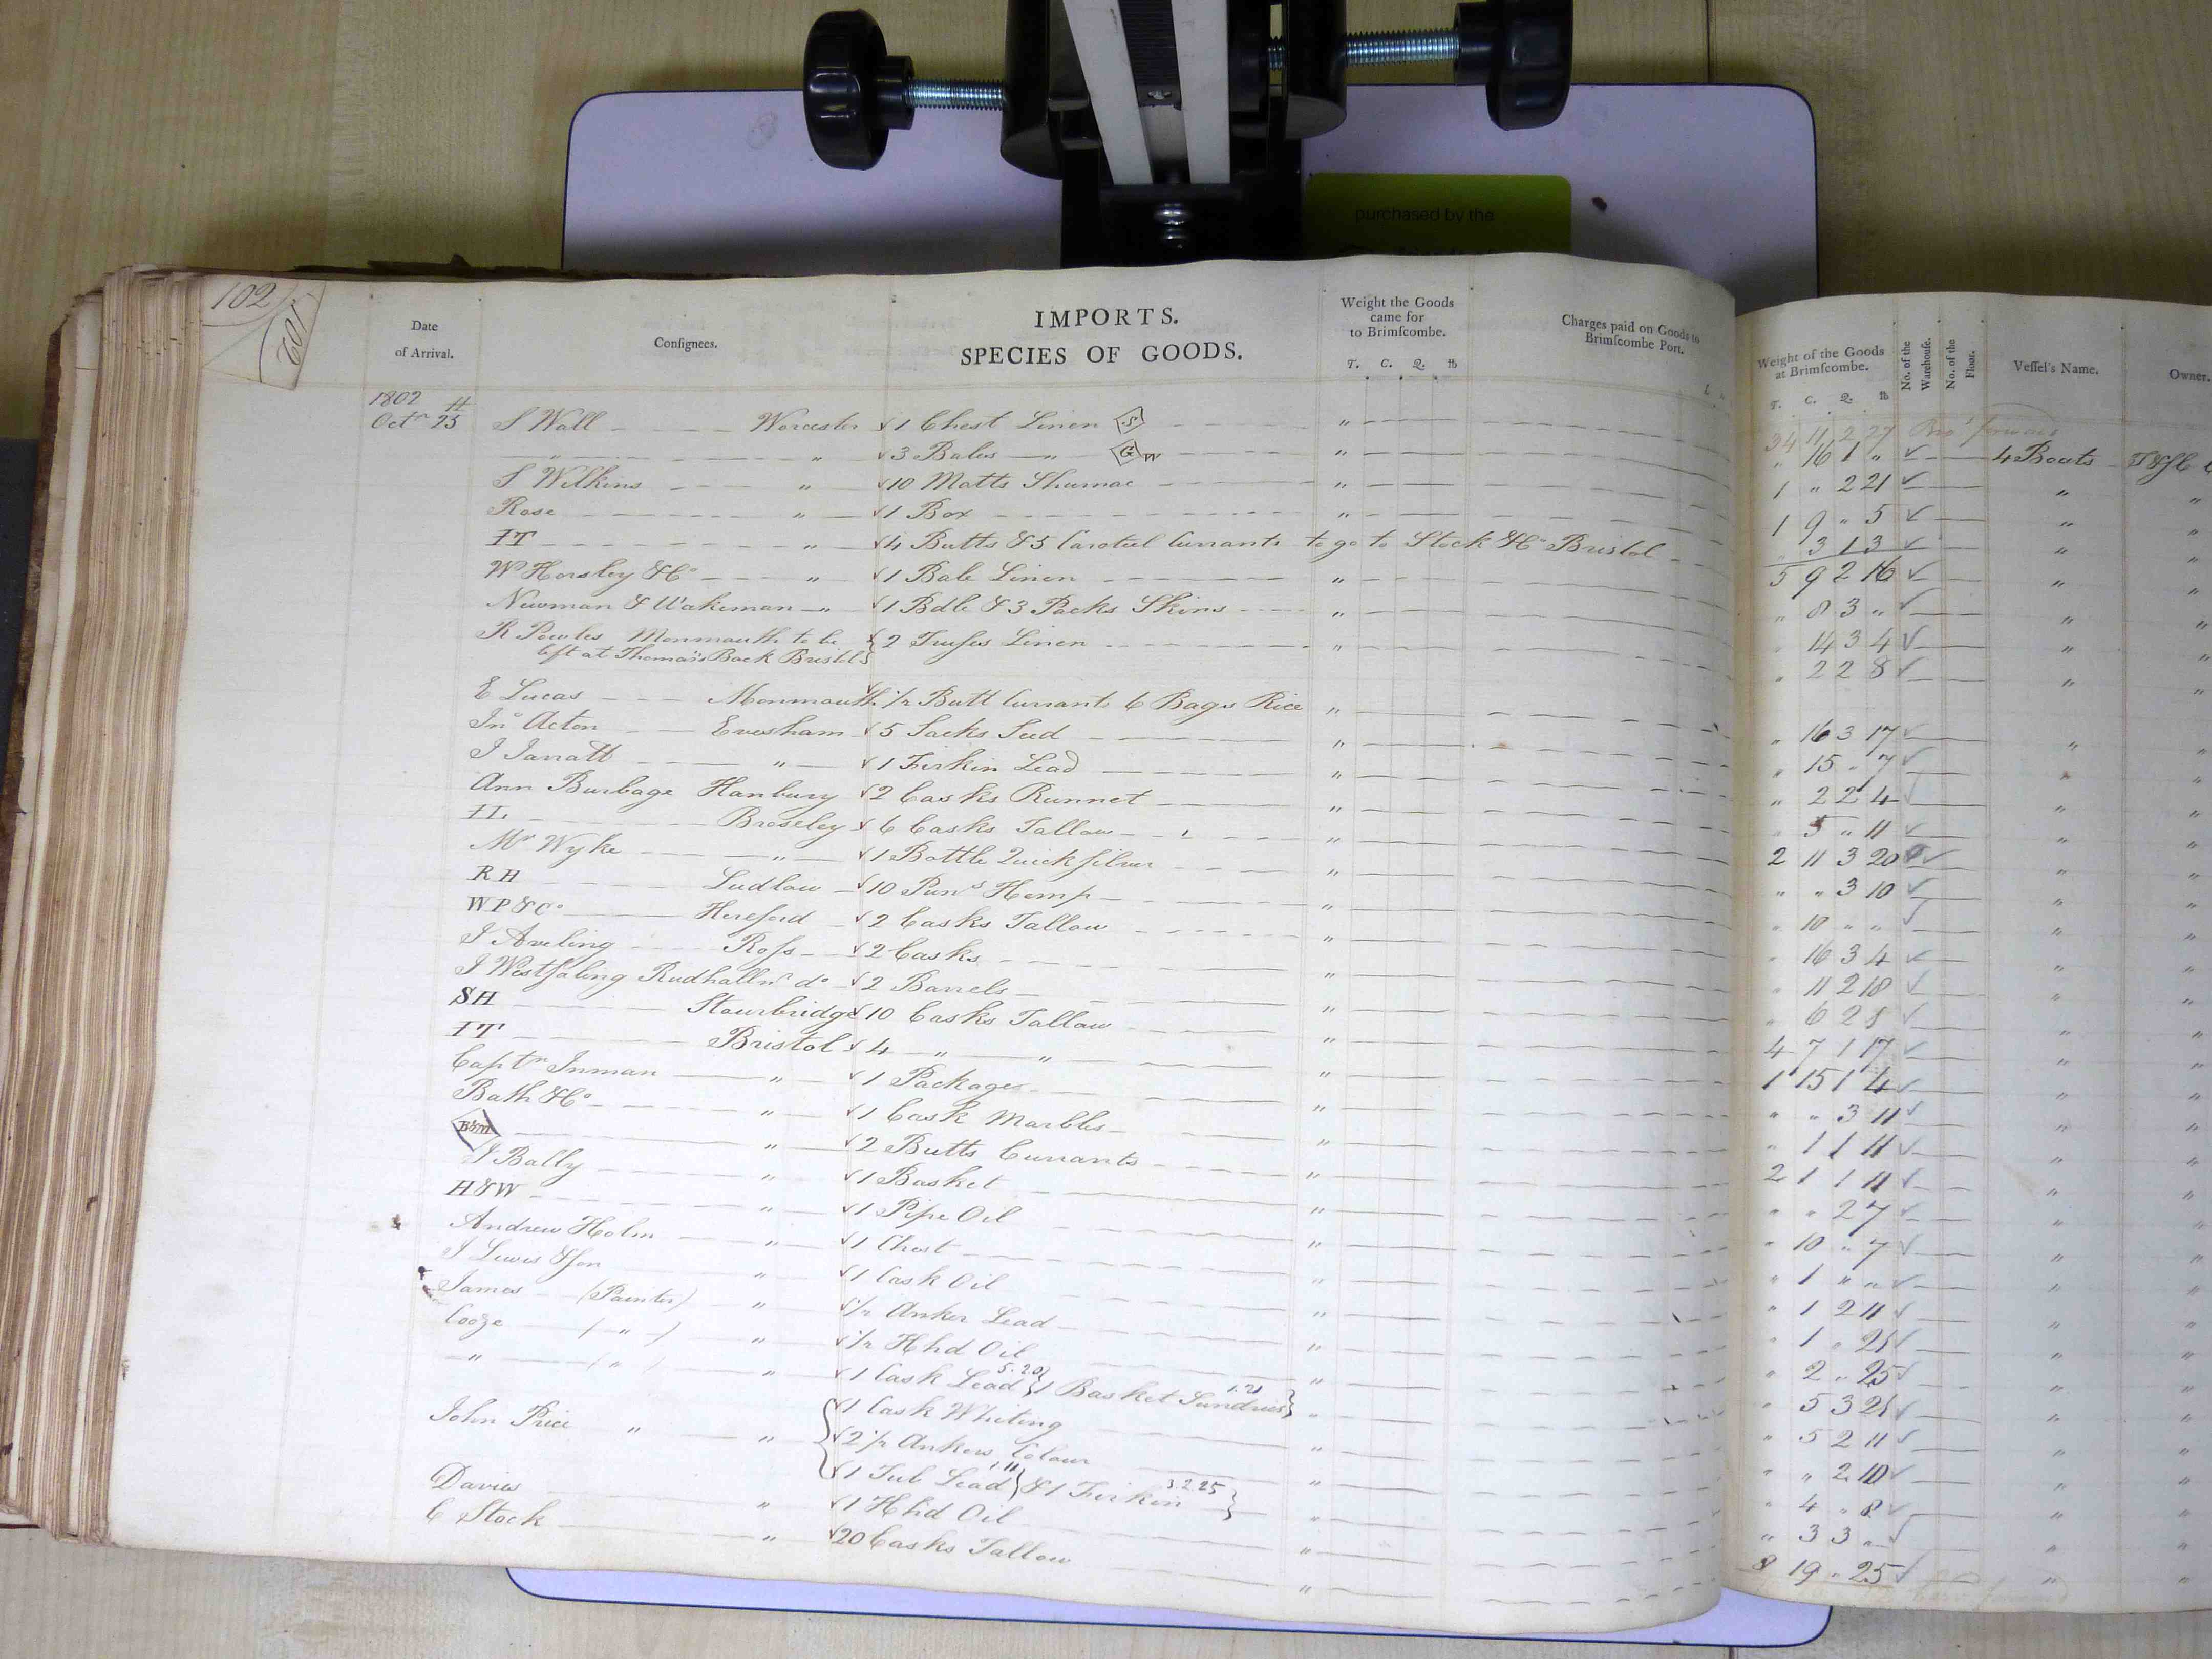 purchased by the
102
102
Date of Arrival.
Consignees.
IMPORTS.
SPECIES OF GOODS.
Weight the Goods came for to Brimscombe.
T. C. Q. lb
Charges paid on Goods to Brimscombe Port.
Weight of the Goods at Brimscombe.
T. C. Q. lb
No. of the Warehouse.
No. of the Floor.
Vessel's Name.
Owner.
1802
34 11 2 27 Bro.t forward
Octr 23 S Wall Worcester 1 Chest Linen S " " 16 1 " 4 Boats
" " 3 Bales " G " 1 " 2 21 " "
S Wilkins " 10 Matts Shumac " 1 9 " 5 " "
Rose " 1 Box " " 3 1 3 " "
IT " 4 Butts & 5 Caroteel Currants to go to Stock & Co Bristol 5 9 2 16 " "
W Horsley & Co " 1 Bale Linen " " 8 3 " " "
Newman & Wakeman " 1 Bdle & 3 Packs Skins " " 14 3 4 " "
R Powles Monmouth to be 2 Trusses Linen " " 2 2 8 " "
left at Thomas's Back Bristol
E Lucas Monmouth 1/2 Butt Currants 6 Bags Rice " " 16 3 17 " "
Jno Acton Evesham 5 Sacks Seed " " 15 " 7 " "
J Jarratt " 1 Firkin Lead " " 2 2 4 " "
Ann Burbage Hanbury 2 Casks Runnet " " 5 " 11 " "
IL Broseley 6 Casks Tallow " 2 11 3 20 " "
Mr Wyke " 1 Bottle Quicksilver " " " 3 10 " "
RH Ludlow 10 Puns Hemp " " 10 " " " "
WP&Co Hereford 2 Casks Tallow " " 16 3 4 " "
J Aveling Ross 2 Casks " " 11 2 18 " "
J Westfaling Rudhall nr do 2 Barrels " " 6 2 8 " "
SH Stourbridge 10 Casks Tallow " 4 7 1 17 " "
IT Bristol 4 " " " 1 15 1 4 " "
Captn Inman " 1 Package " " " 3 11 " "
Bath & Co " 1 Cask Marbles " " 1 1 11 " "
" 2 Butts Currants " 2 1 1 11 " "
J Bally " 1 Basket " " " 2 7 " "
H&W " 1 Pipe Oil " " 10 " 7 " "
Andrew Holm " 1 Chest " " 1 " " " "
J Lewis & Son " 1 Cask Oil " " 1 2 11 " "
James (Painter) " 1/2 Anker Lead " " 1 " 21 " "
Cooze ( " ) " 1/2 Hhd Oil " " 2 " 25 " "
" ( " ) " 1 Cask Lead 5.20 1 Basket Sundries 1.21 " " 5 3 21 " "
1 Cask Whiting " " 5 2 11 " "
John Price " " 2 1/2 Ankers Colour " " " 2 10 " "
1 Tub Lead 1.11 & 1 Firkin 3.2.25 " " 4 " 8 " "
Davies " 1 Hhd Oil " " 3 3 " " "
C Stock " 20 Casks Tallow " 8 19 " 25 " "